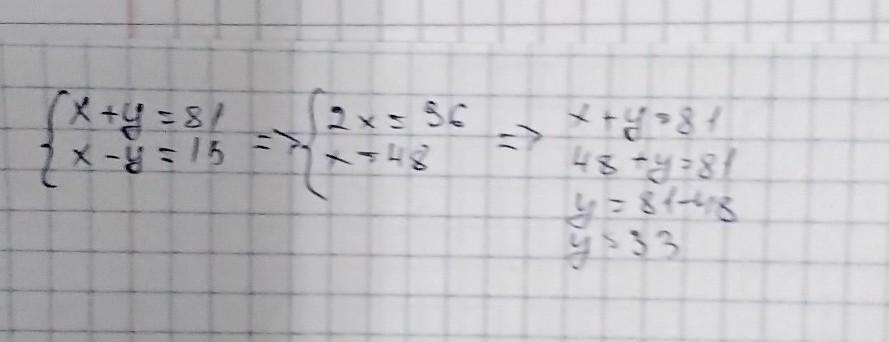 x + y = 81
x - y = 15
=>
2x = 96
x = 48
=>
x + y = 81
48 + y = 81
y = 81 - 48
y = 33